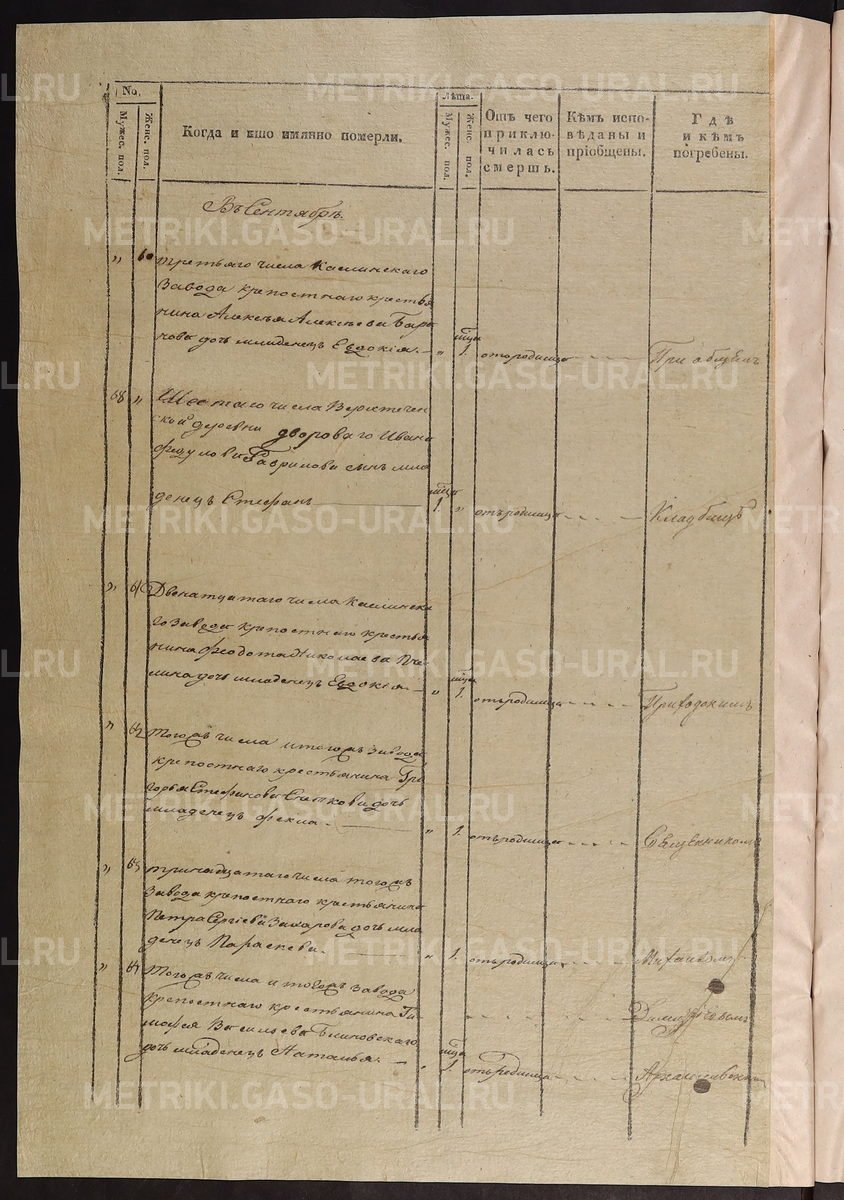 No
Мужес. пол.
Женс. пол.
Когда и кто имянно померли.
Лѣта.
Мужес. пол.
Женс. пол.
Отъ чего приклю-
чилась смерть.
Кѣмъ испо-
вѣданы и
пріобщены.
Гдѣ
и кѣмъ
погребены.
Въ Сентябрѣ
„ 60 третьяго числа Каслинскаго
Завода крепостнаго крестья
нина Алексѣя Алексѣева
дочь младенецъ Евдокія. „ 1. отъ родимца При общемъ
58 „ Шестаго числа
деревни двороваго Ивана
Гаврилова сынъ мла
денецъ Стефанъ 1 „ отъ родимца Кладбищѣ
„ 61 Двенатцатаго числа Каслинска
го Завода крепостнаго крестья
нина Федота Николаева
дочь младенецъ Евдокія „ 1. отъ родимца Приходскимъ
„ 62 Тогожъ числа итогожъ завода
крепостнаго крестьянина Гри
горья Стефанова дочь
младенецъ Фекла. „ 1. отъ родимца Священникомъ
„ 63 тринадцатаго числа тогожъ
Завода крепостнаго крестьянина
Петра Сергіева Захарова дочь мла
денецъ Параскева. „ 1. отъ родимца
„ 64 Тогожъ числа и тогожъ завода
крепостнаго крестьянина Ти
мофея Васильева Блиновскаго
дочь младенецъ Наталья. „ 1. отъ родимца
METRIKI.GASO-URAL.RU